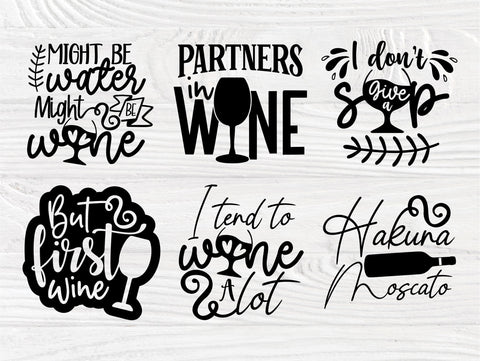 MIGHT BE
water
Might BE
wine
PARTNERS
in
WINE
I don't
give
a
sip
But
first
wine
I tend to
wine
A lot
Hakuna
Moscato